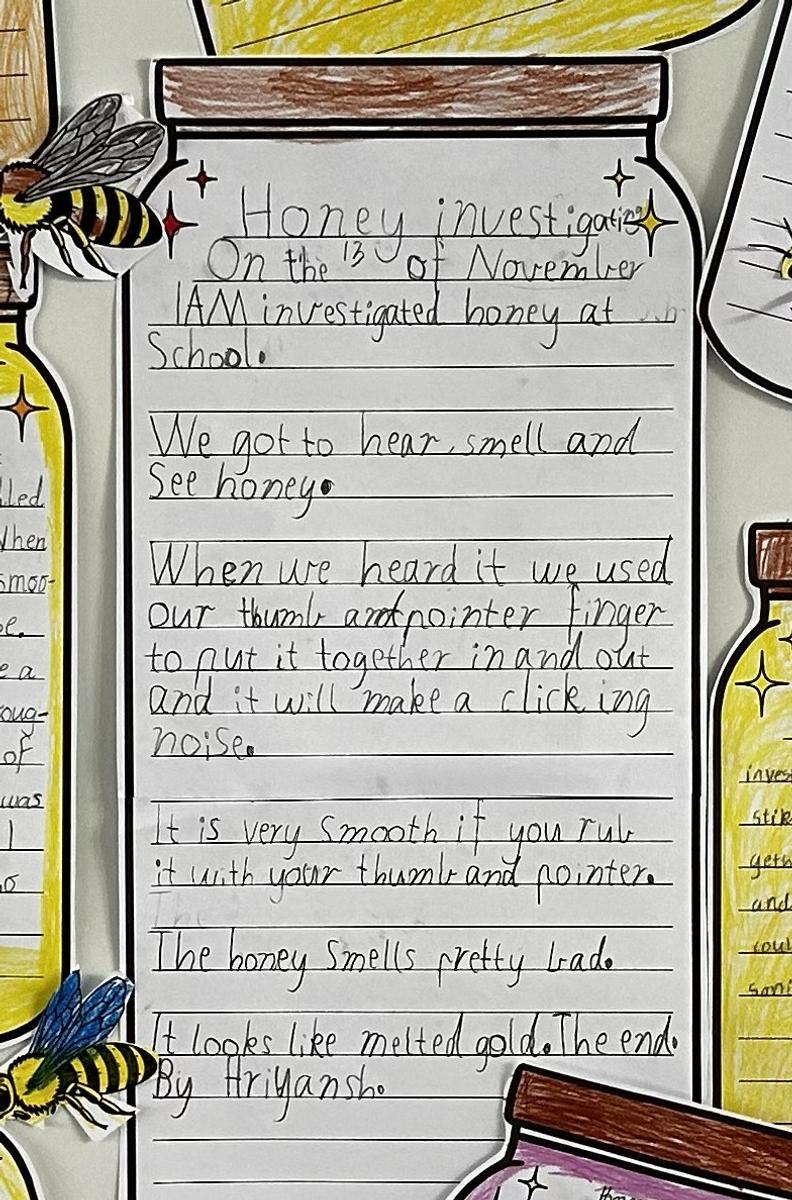 Honey investigating
On the 13 of November
1AM investigated honey at
School.
We got to hear, smell and
See honey.
When we heard it we used
our thumb and pointer finger
to put it together in and out
and it will make a click ing
noise.
It is very smooth if you rub
it with your thumb and pointer.
The
The honey smells pretty bad.
It looks like melted gold. The end.
By Hriyansh.
lled
When
smoo-
e.
e a
oug-
of
was
l
o
inves
stik
gets
and
coul